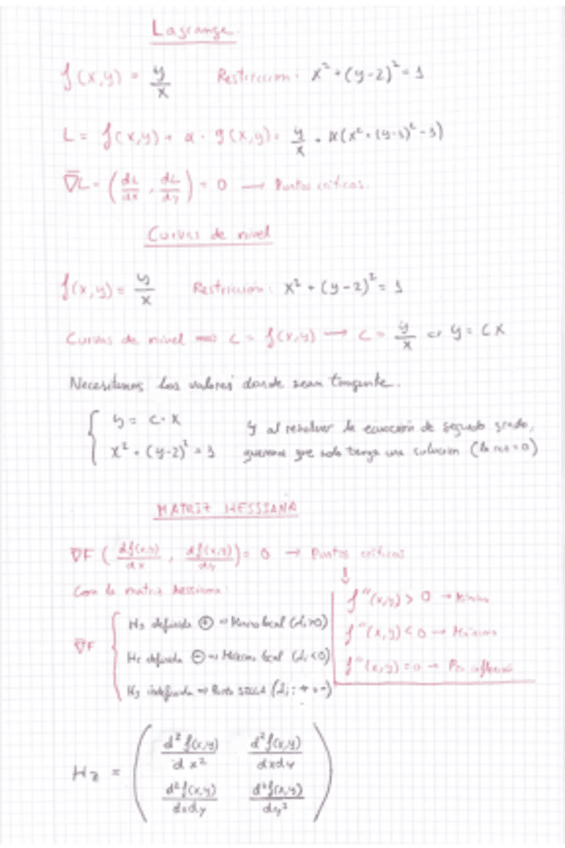 Lagrange
f(x,y) = y/x Restricción: x² + (y-2)² = 1
L = f(x,y) + α · g(x,y) = y/x + α(x² + (y-2)² - 1)
∇L = (dL/dx , dL/dy) = 0 → Puntos críticos.
Curvas de nivel
f(x,y) = y/x Restricción: x² + (y-2)² = 1
Curvas de nivel ⇒ C = f(x,y) → C = y/x ⇒ y = CX
Necesitamos los valores donde sean tangente.
{ y = C·X
x² + (y-2)² = 1
Y al resolver la ecuación de segundo grado,
queremos que solo tenga una solución (la = 0)
MATRIZ HESSIANA
∇F (df(x,y)/dx , df(x,y)/dy) = 0 → Puntos críticos
↓
Con la matriz hessiana:
∇F {
Hz definida ⊕ ⇒ Mínimo local (λi>0)
Hz definida ⊖ ⇒ Máximo local (λi<0)
Hz indefinida ⇒ Punto SILLA (λi: + o -)
f''(x,y) > 0 → Mínimo
f''(x,y) < 0 → Máximo
f''(x,y) = 0 → inflexión
Hz = ( d²f(x,y)/dx² d²f(x,y)/dxdy
d²f(x,y)/dxdy d²f(x,y)/dy² )